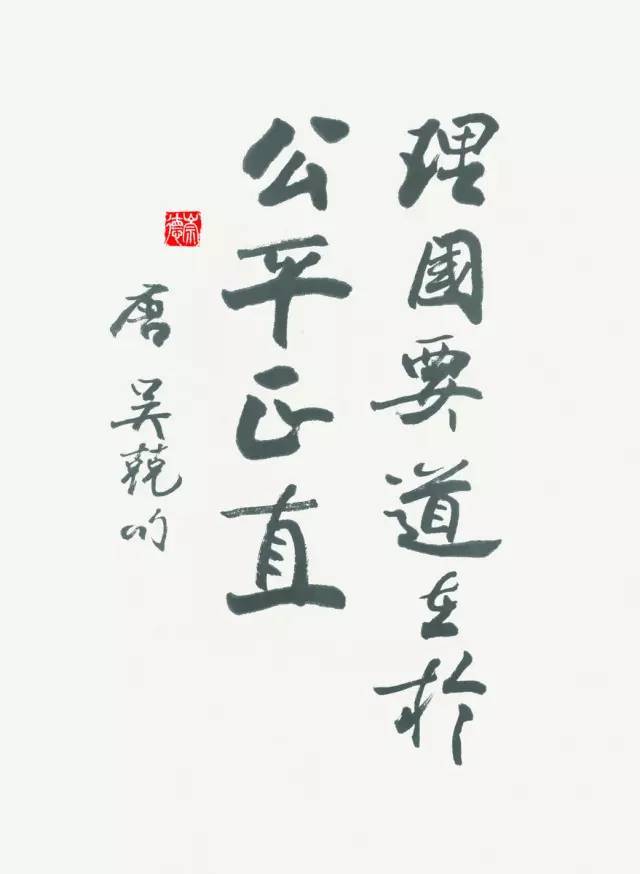 理國要道在於
公平正直
唐 吴兢句
崇德